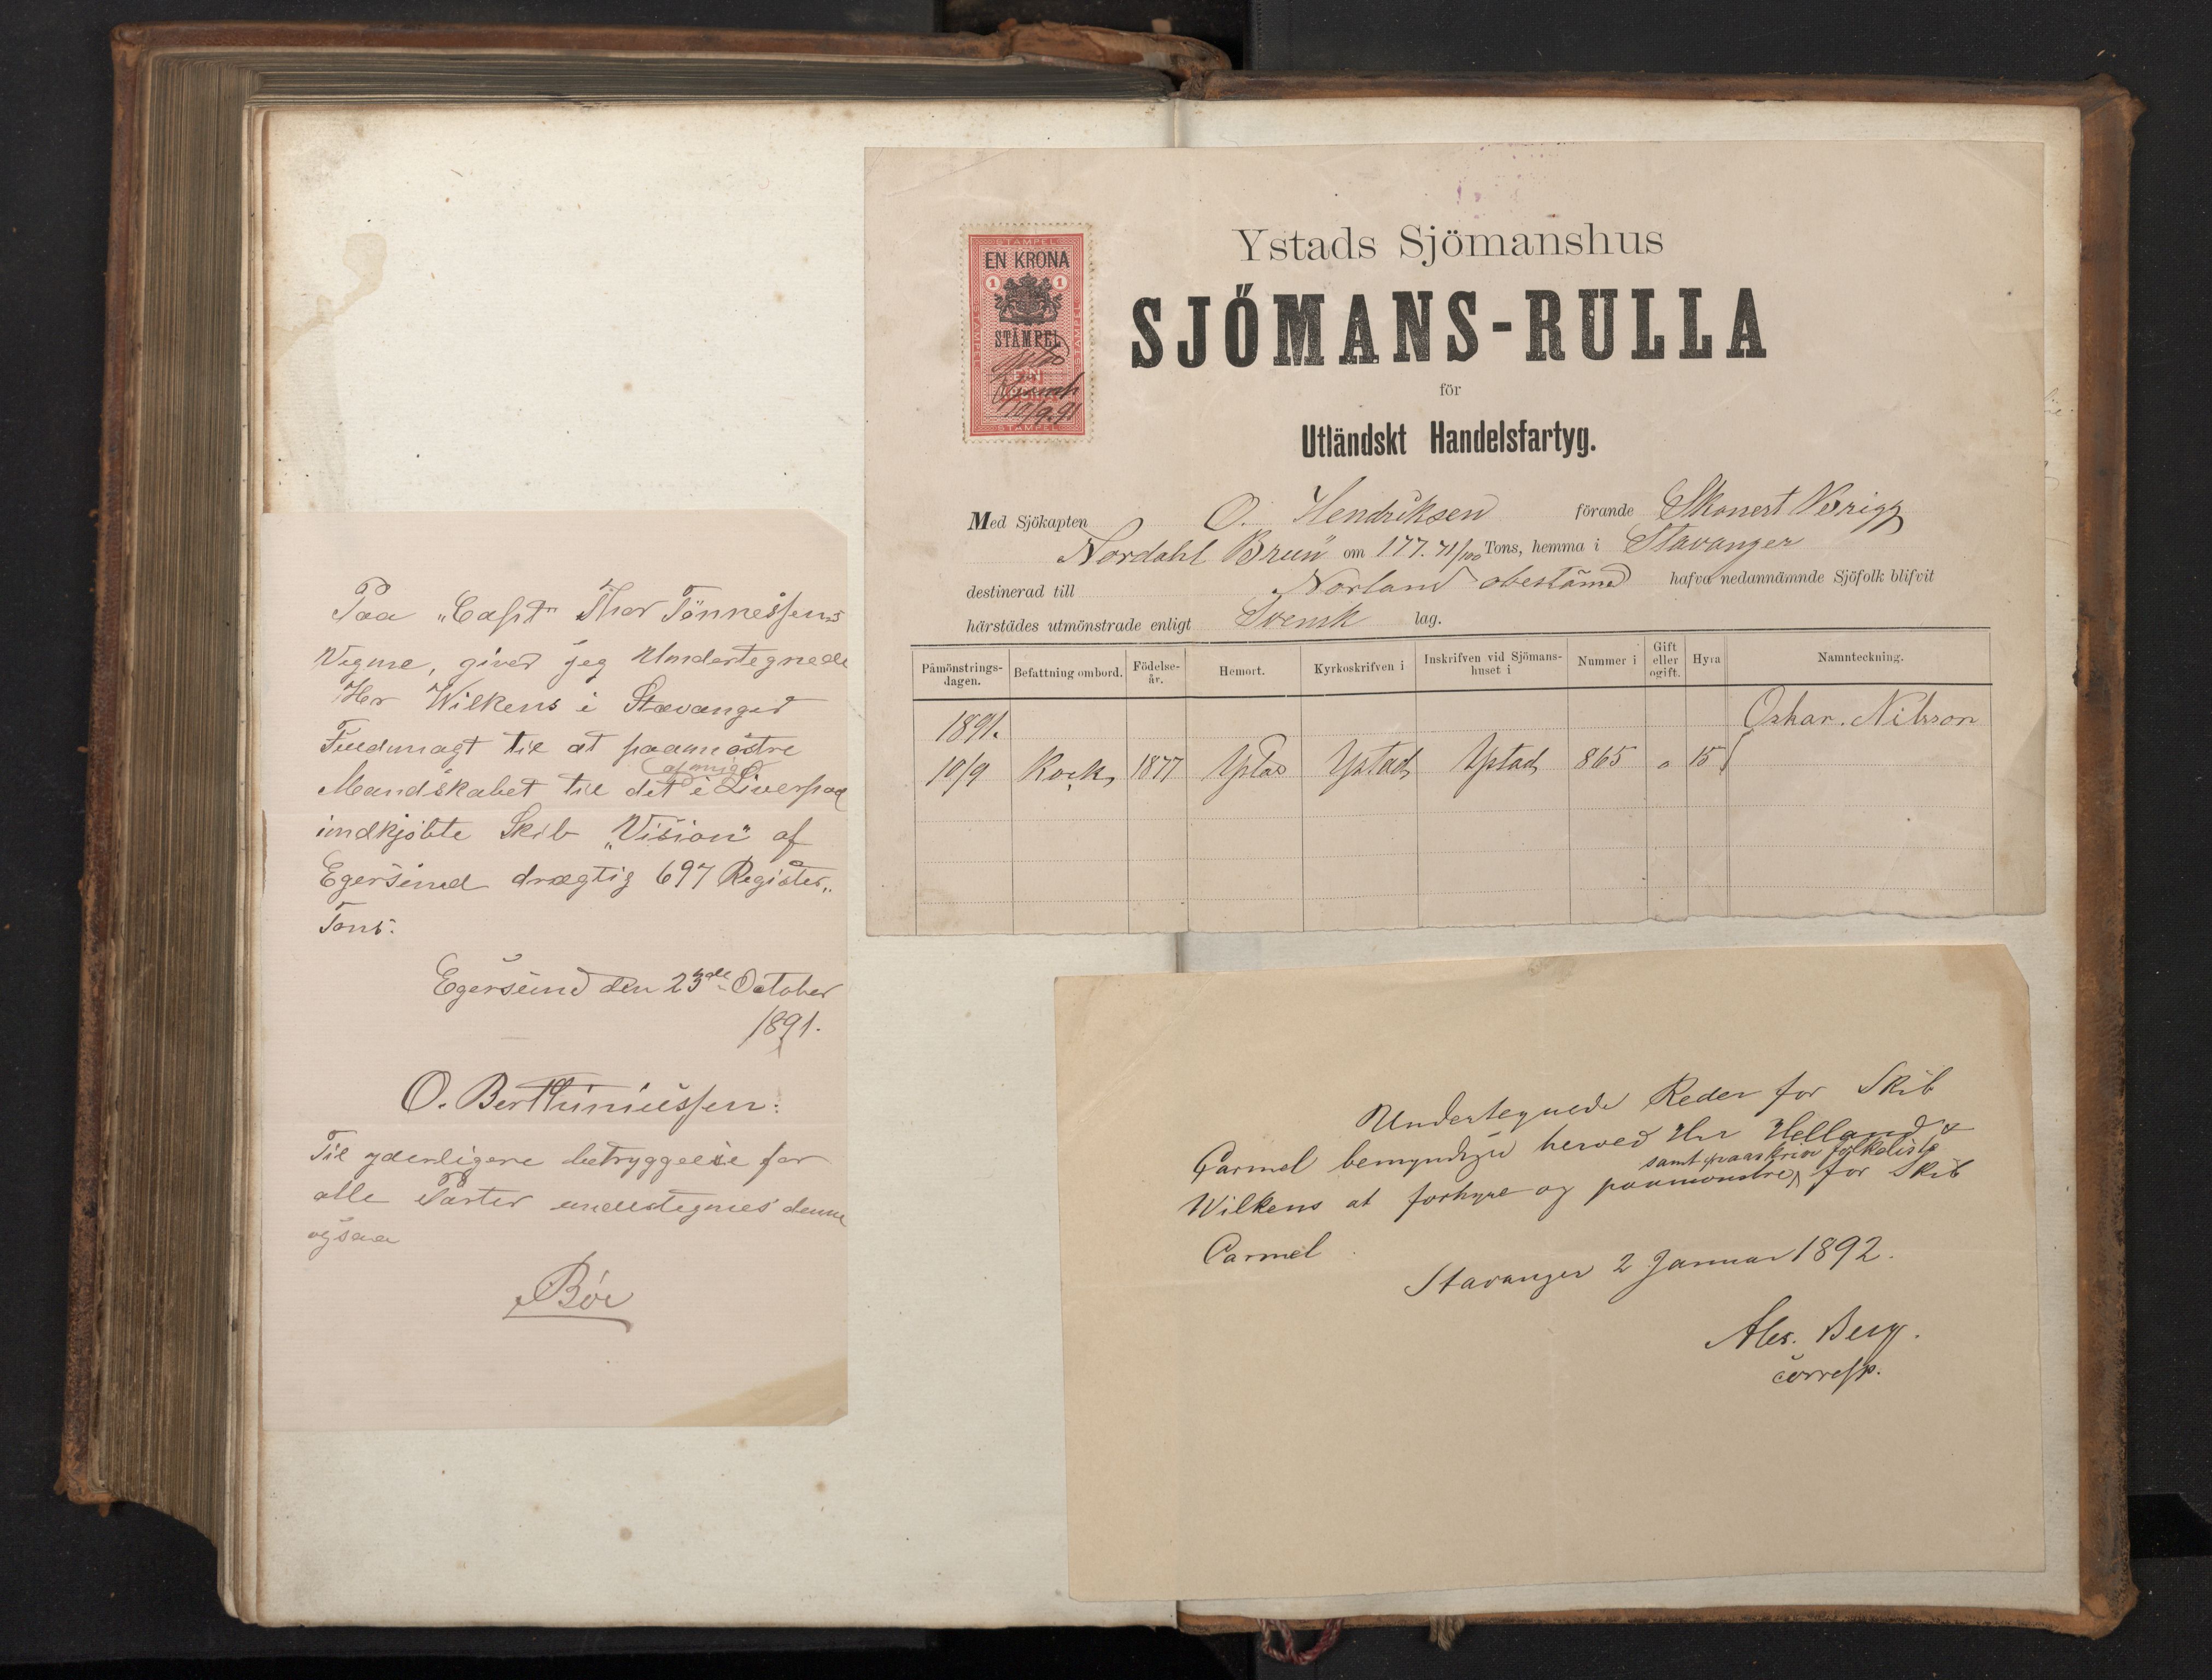 Paa „Capt" Thor Tönnessens
Vegne, giver jeg Undertegnede
Hr Wilkens i Stavanger
Fuldmagt til at paamøstre
Mandskabet til det af mig i Liverpool
indkjøbte Skib „Vision" af
Egersund drægtig 697 Register„
Tons.
Egersund den 23de October
1891.
O. Berthiniussen:
Til yderligere betryggelse for
alle Parter undertegnes denne
ogsaa
Bøe
STÄMPEL
EN KRONA
1 1
STÄMPEL
10/9 91
STÄMPEL
Ystads Sjömanshus
SJÖMANS-RULLA
för
Utländskt Handelsfartyg.
Med Sjökapten O. Hendriksen förande Skonert Brigg
Nordahl Brun om 177.71/100 Tons, hemma i Stavanger
destinerad till Norland obestämd hafva nedannämnde Sjöfolk blifvit
härstädes utmönstrade enligt Svensk lag.
Påmönstrings-dagen. Befattning ombord. Födelse-år. Hemort. Kyrkoskrifven i Inskrifven vid Sjömans-huset i Nummer i Gift eller ogift. Hyra Namnteckning.
1891. Oskar. Nilsson
10/9 Kock, 1877 Ystad Ystad Ystad 865 o 15
Undertegnede Reder for Skib
Carmel bemyndiger herved Hrr Helland &
Wilkens at forhyre og paamønstre, samt paaskrive folkeliste for Skib
Carmel
Stavanger 2 Januar 1892.
Alex. Berg.
corresp.